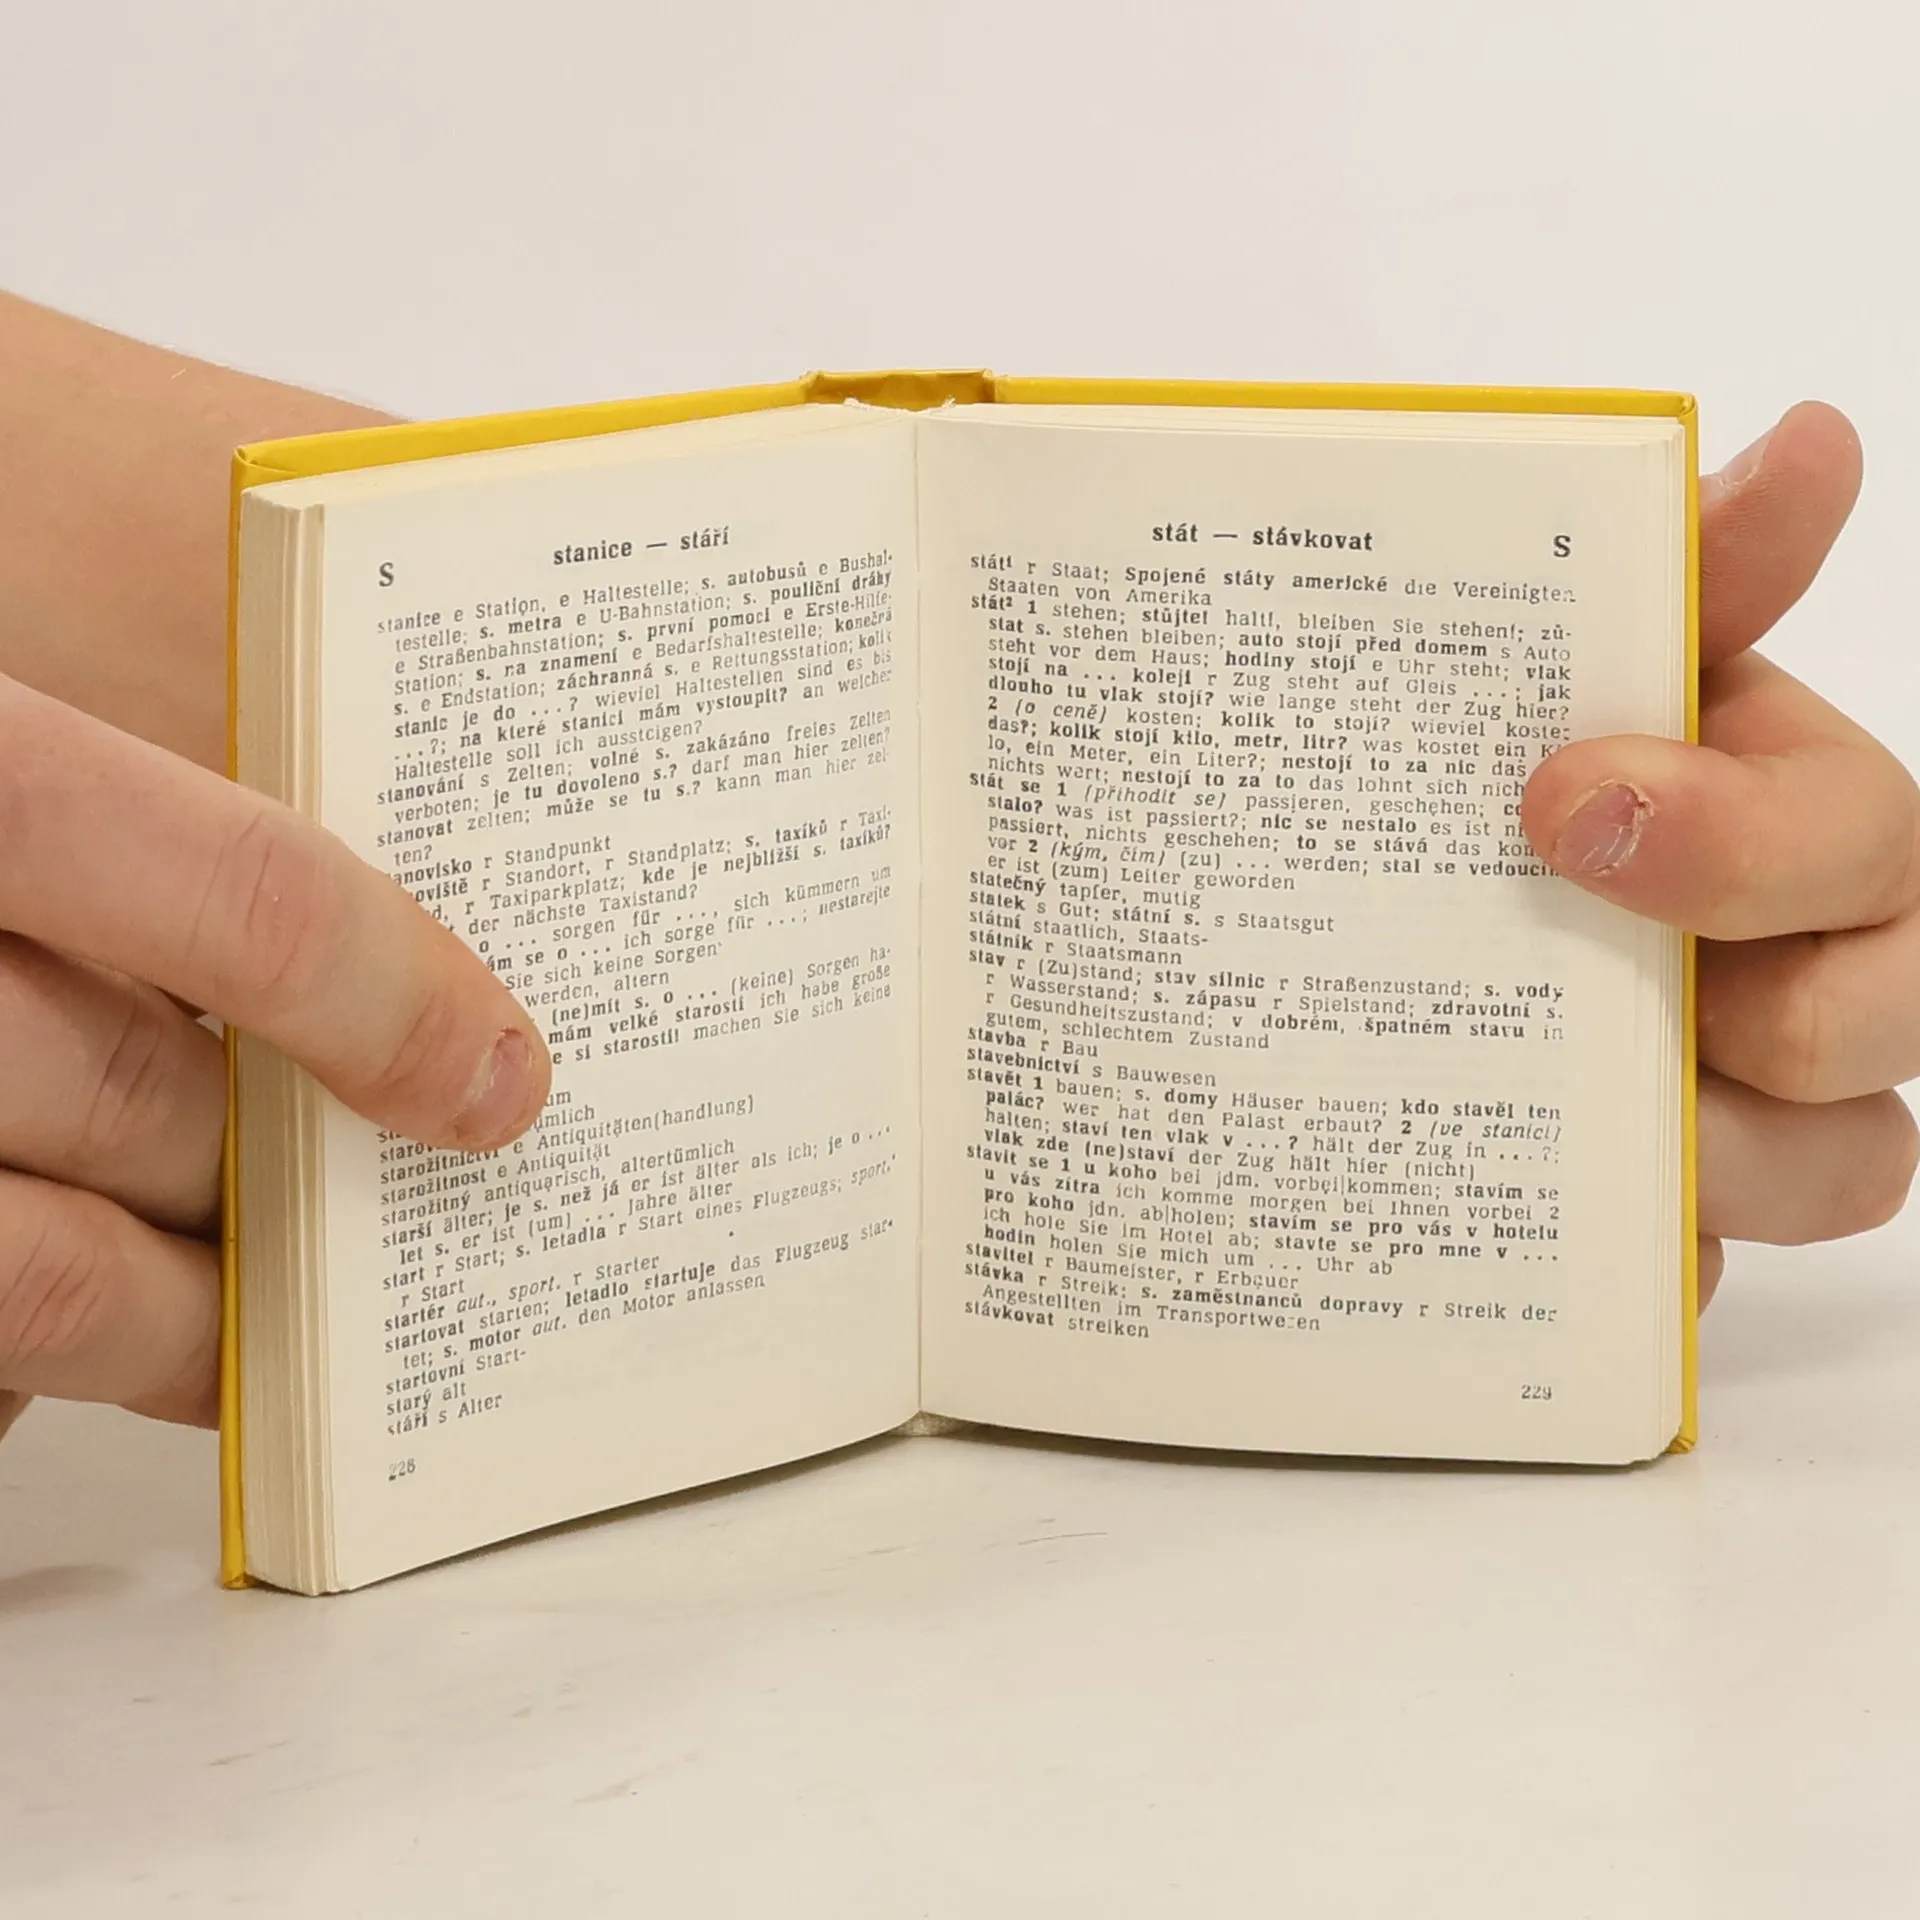 S
stanice — stáří
stanice e Station, e Haltestelle; s. autobusů e Bushal-
testelle; s. metra e U-Bahnstation; s. pouliční dráhy
e Straßenbahnstation; s. první pomoci e Erste-Hilfe-
Station; s. na znamení e Bedarfshaltestelle; konečná
s. e Endstation; záchranná s. e Rettungsstation; kolik
stanic je do ...? wieviel Haltestellen sind es bis
...?; na které stanici mám vystoupit? an welcher
Haltestelle soll ich aussteigen?
stanování s Zelten; volné s. zakázáno freies Zelten
verboten; je tu dovoleno s.? darf man hier zelten?
stanovat zelten; může se tu s.? kann man hier zel-
ten?
anovisko r Standpunkt
oviště r Standort, r Standplatz; s. taxíků r Taxi-
d, r Taxiparkplatz; kde je nejbližší s. taxíků?
der nächste Taxistand?
o ... sorgen für ..., sich kümmern um
ám se o ... ich sorge für ...; nestarejte
Sie sich keine Sorgen
werden, altern
(ne)mít s. o ... (keine) Sorgen ha-
mám velké starosti ich habe große
e si starosti! machen Sie sich keine
um
ümlich
starožitnictví e Antiquitäten(handlung)
starožitnost e Antiquität
starožitný antiquarisch, altertümlich
starší älter; je s. než já er ist älter als ich; je o ...
let s. er ist (um) ... Jahre älter
start r Start; s. letadla r Start eines Flugzeugs; sport.
r Start
startér aut., sport. r Starter
startovat starten; letadlo startuje das Flugzeug star-
tet; s. motor aut. den Motor anlassen
startovní Start-
starý alt
stáří s Alter
228
stát — stávkovat
S
stát¹ r Staat; Spojené státy americké die Vereinigten
Staaten von Amerika
stát² 1 stehen; stůjte! halt!, bleiben Sie stehen!; zů-
stat s. stehen bleiben; auto stojí před domem s Auto
steht vor dem Haus; hodiny stojí e Uhr steht; vlak
stojí na ... koleji r Zug steht auf Gleis ...; jak
dlouho tu vlak stojí? wie lange steht der Zug hier?
2 (o ceně) kosten; kolik to stojí? wieviel kostet
das?; kolik stojí kilo, metr, litr? was kostet ein Ki
lo, ein Meter, ein Liter?; nestojí to za nic das
nichts wert; nestojí to za to das lohnt sich nich
stát se 1 (přihodit se) passieren, geschehen; co
stalo? was ist passiert?; nic se nestalo es ist ni
passiert, nichts geschehen; to se stává das kom
vor 2 (kým, čím) (zu) ... werden; stal se vedoucím
er ist (zum) Leiter geworden
statečný tapfer, mutig
statek s Gut; státní s. s Staatsgut
státní staatlich, Staats-
státník r Staatsmann
stav r (Zu)stand; stav silnic r Straßenzustand; s. vody
r Wasserstand; s. zápasu r Spielstand; zdravotní s.
r Gesundheitszustand; v dobrém, špatném stavu in
gutem, schlechtem Zustand
stavba r Bau
stavebnictví s Bauwesen
stavět 1 bauen; s. domy Häuser bauen; kdo stavěl ten
palác? wer hat den Palast erbaut? 2 (ve stanici)
halten; staví ten vlak v ...? hält der Zug in ...?;
vlak zde (ne)staví der Zug hält hier (nicht)
stavit se 1 u koho bei jdm. vorbei|kommen; stavím se
u vás zítra ich komme morgen bei Ihnen vorbei 2
pro koho jdn. ab|holen; stavím se pro vás v hotelu
ich hole Sie im Hotel ab; stavte se pro mne v ...
hodin holen Sie mich um ... Uhr ab
stavitel r Baumeister, r Erbauer
stávka r Streik; s. zaměstnanců dopravy r Streik der
Angestellten im Transportwesen
stávkovat streiken
229